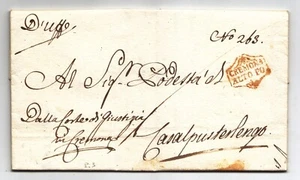 D'uffo.
No 263.
CREMONA
ALTO PO
Al Sigr. Podestà di
Dalla Corte di Giustizia
in Cremona
Casalpusterlengo